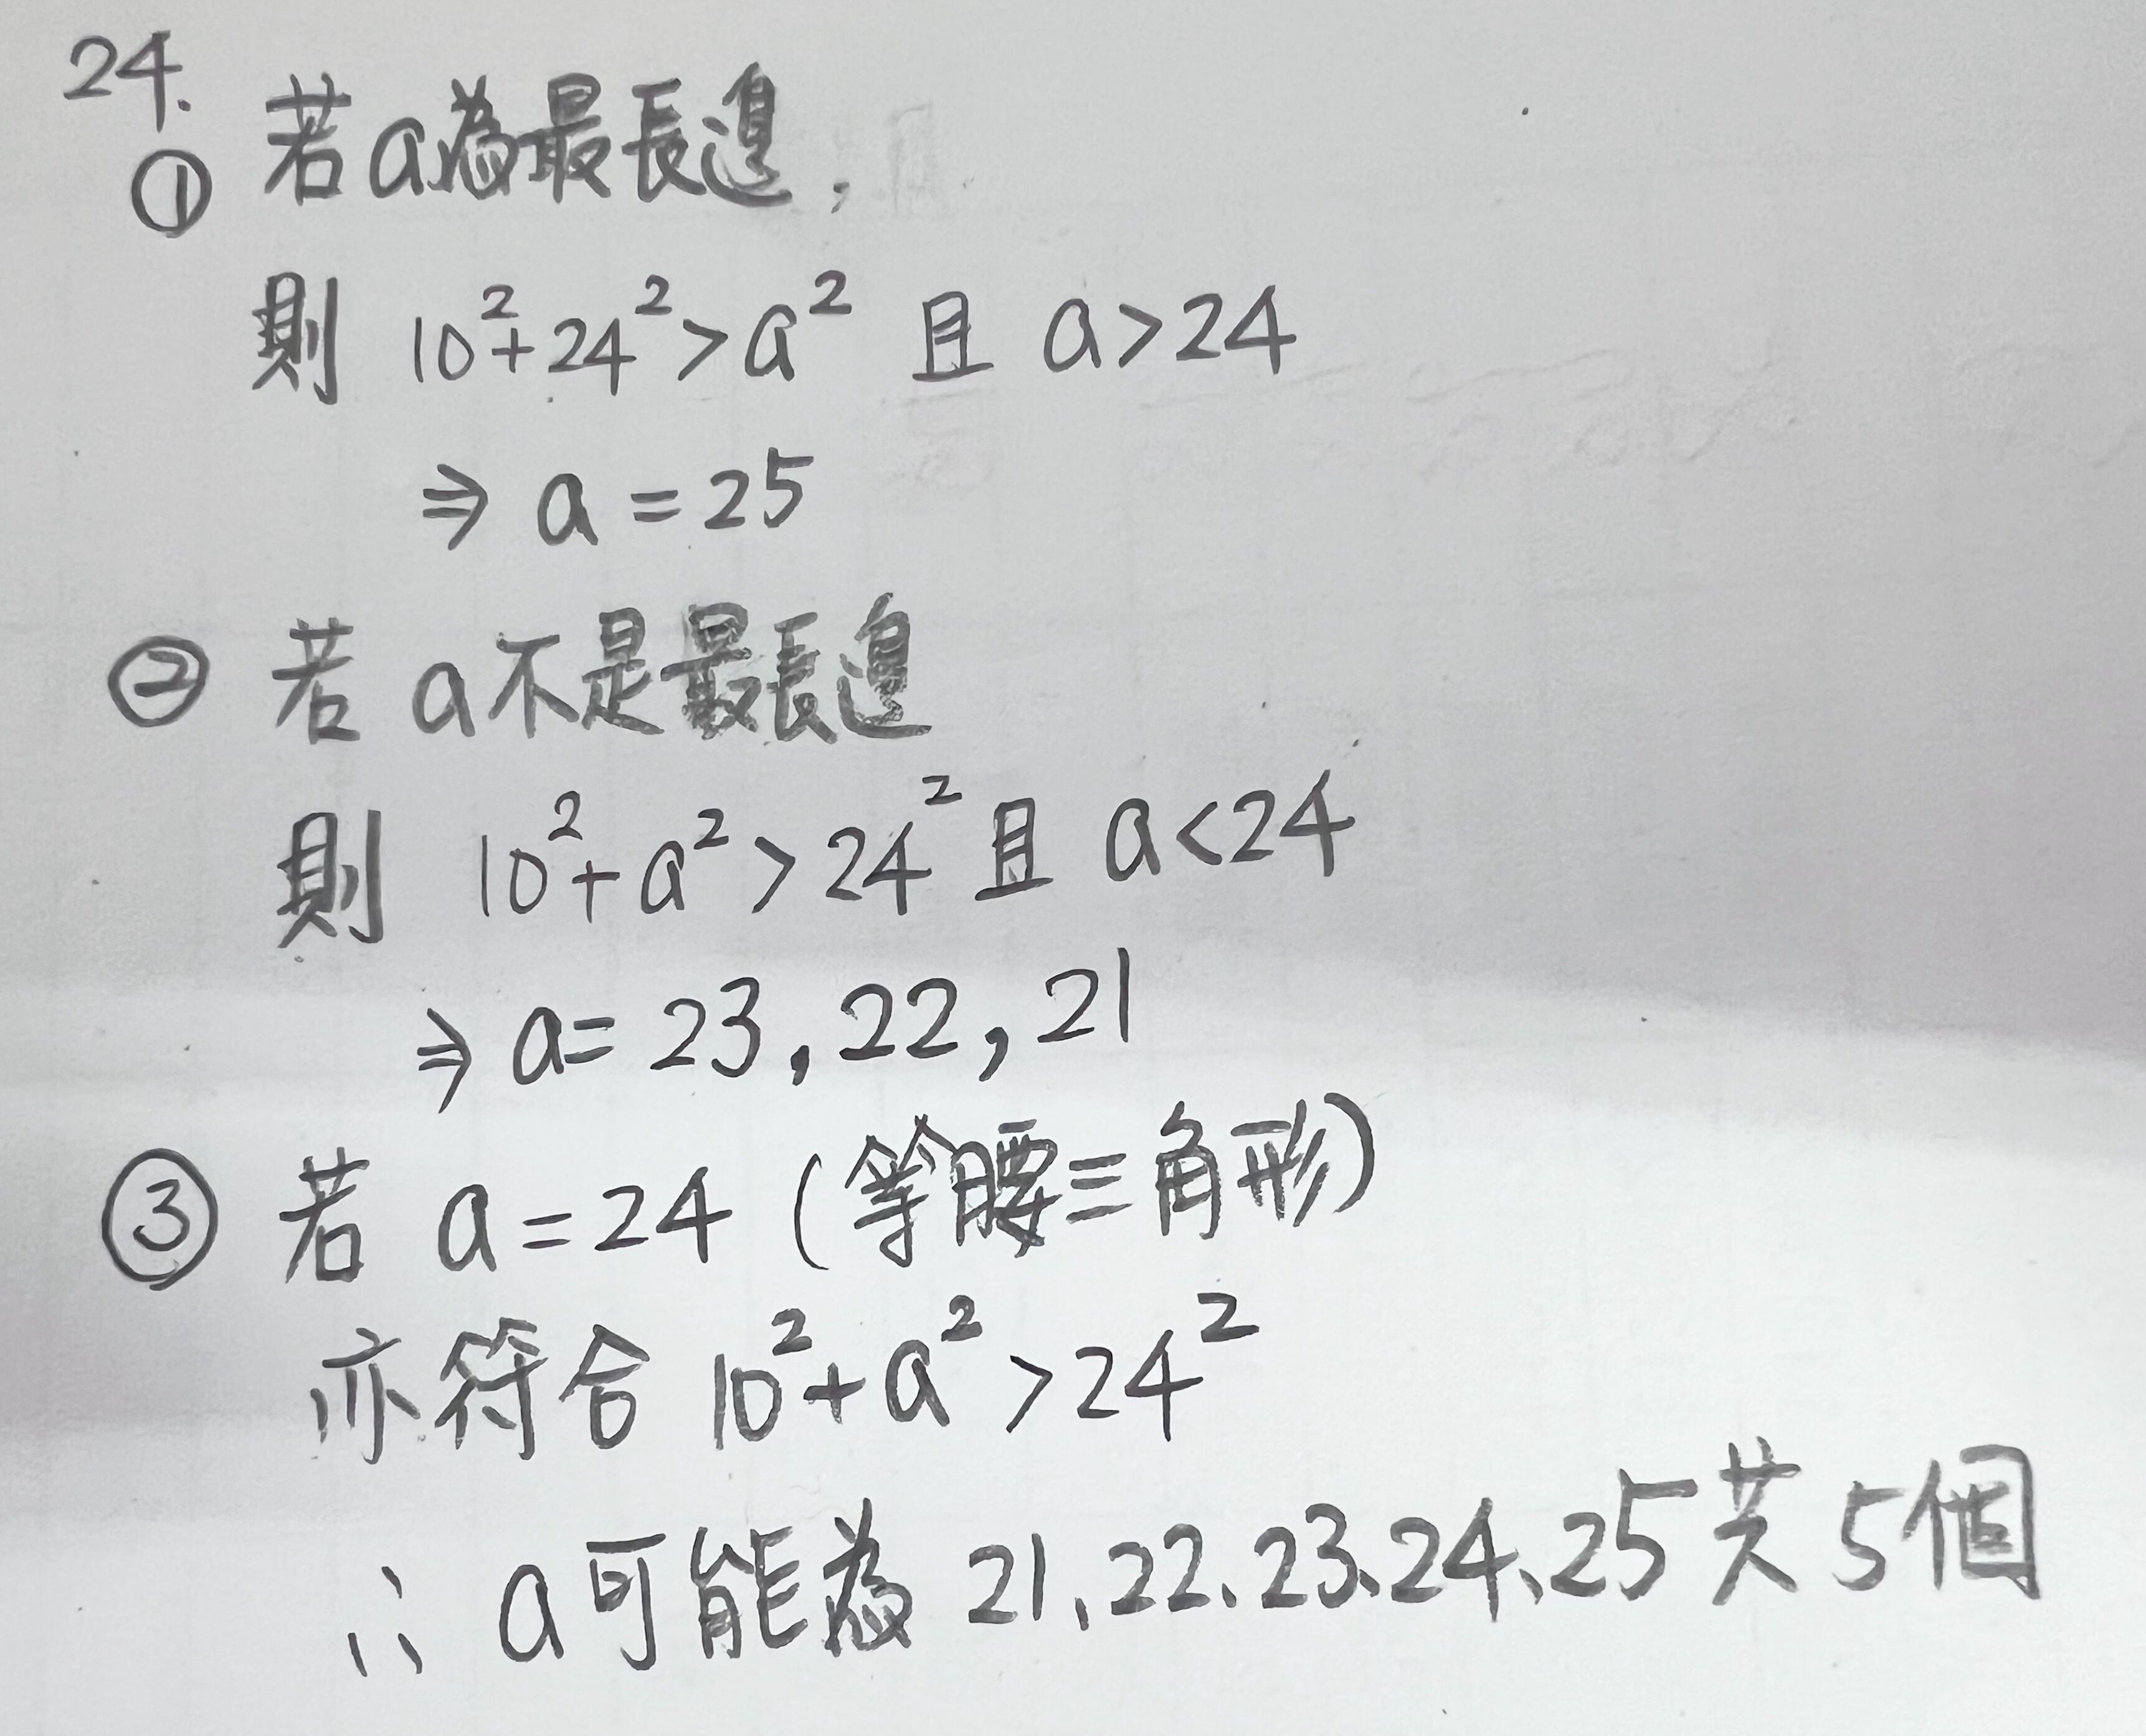 24.
① 若a為最長邊,
則 10²+24²>a² 且 a>24
⇒ a=25
② 若 a不是最長邊
則 10²+a²>24² 且 a<24
⇒ a=23,22,21
③ 若 a=24 (等腰三角形)
亦符合 10²+a²>24²
∴ a可能為 21、22、23、24、25共5個